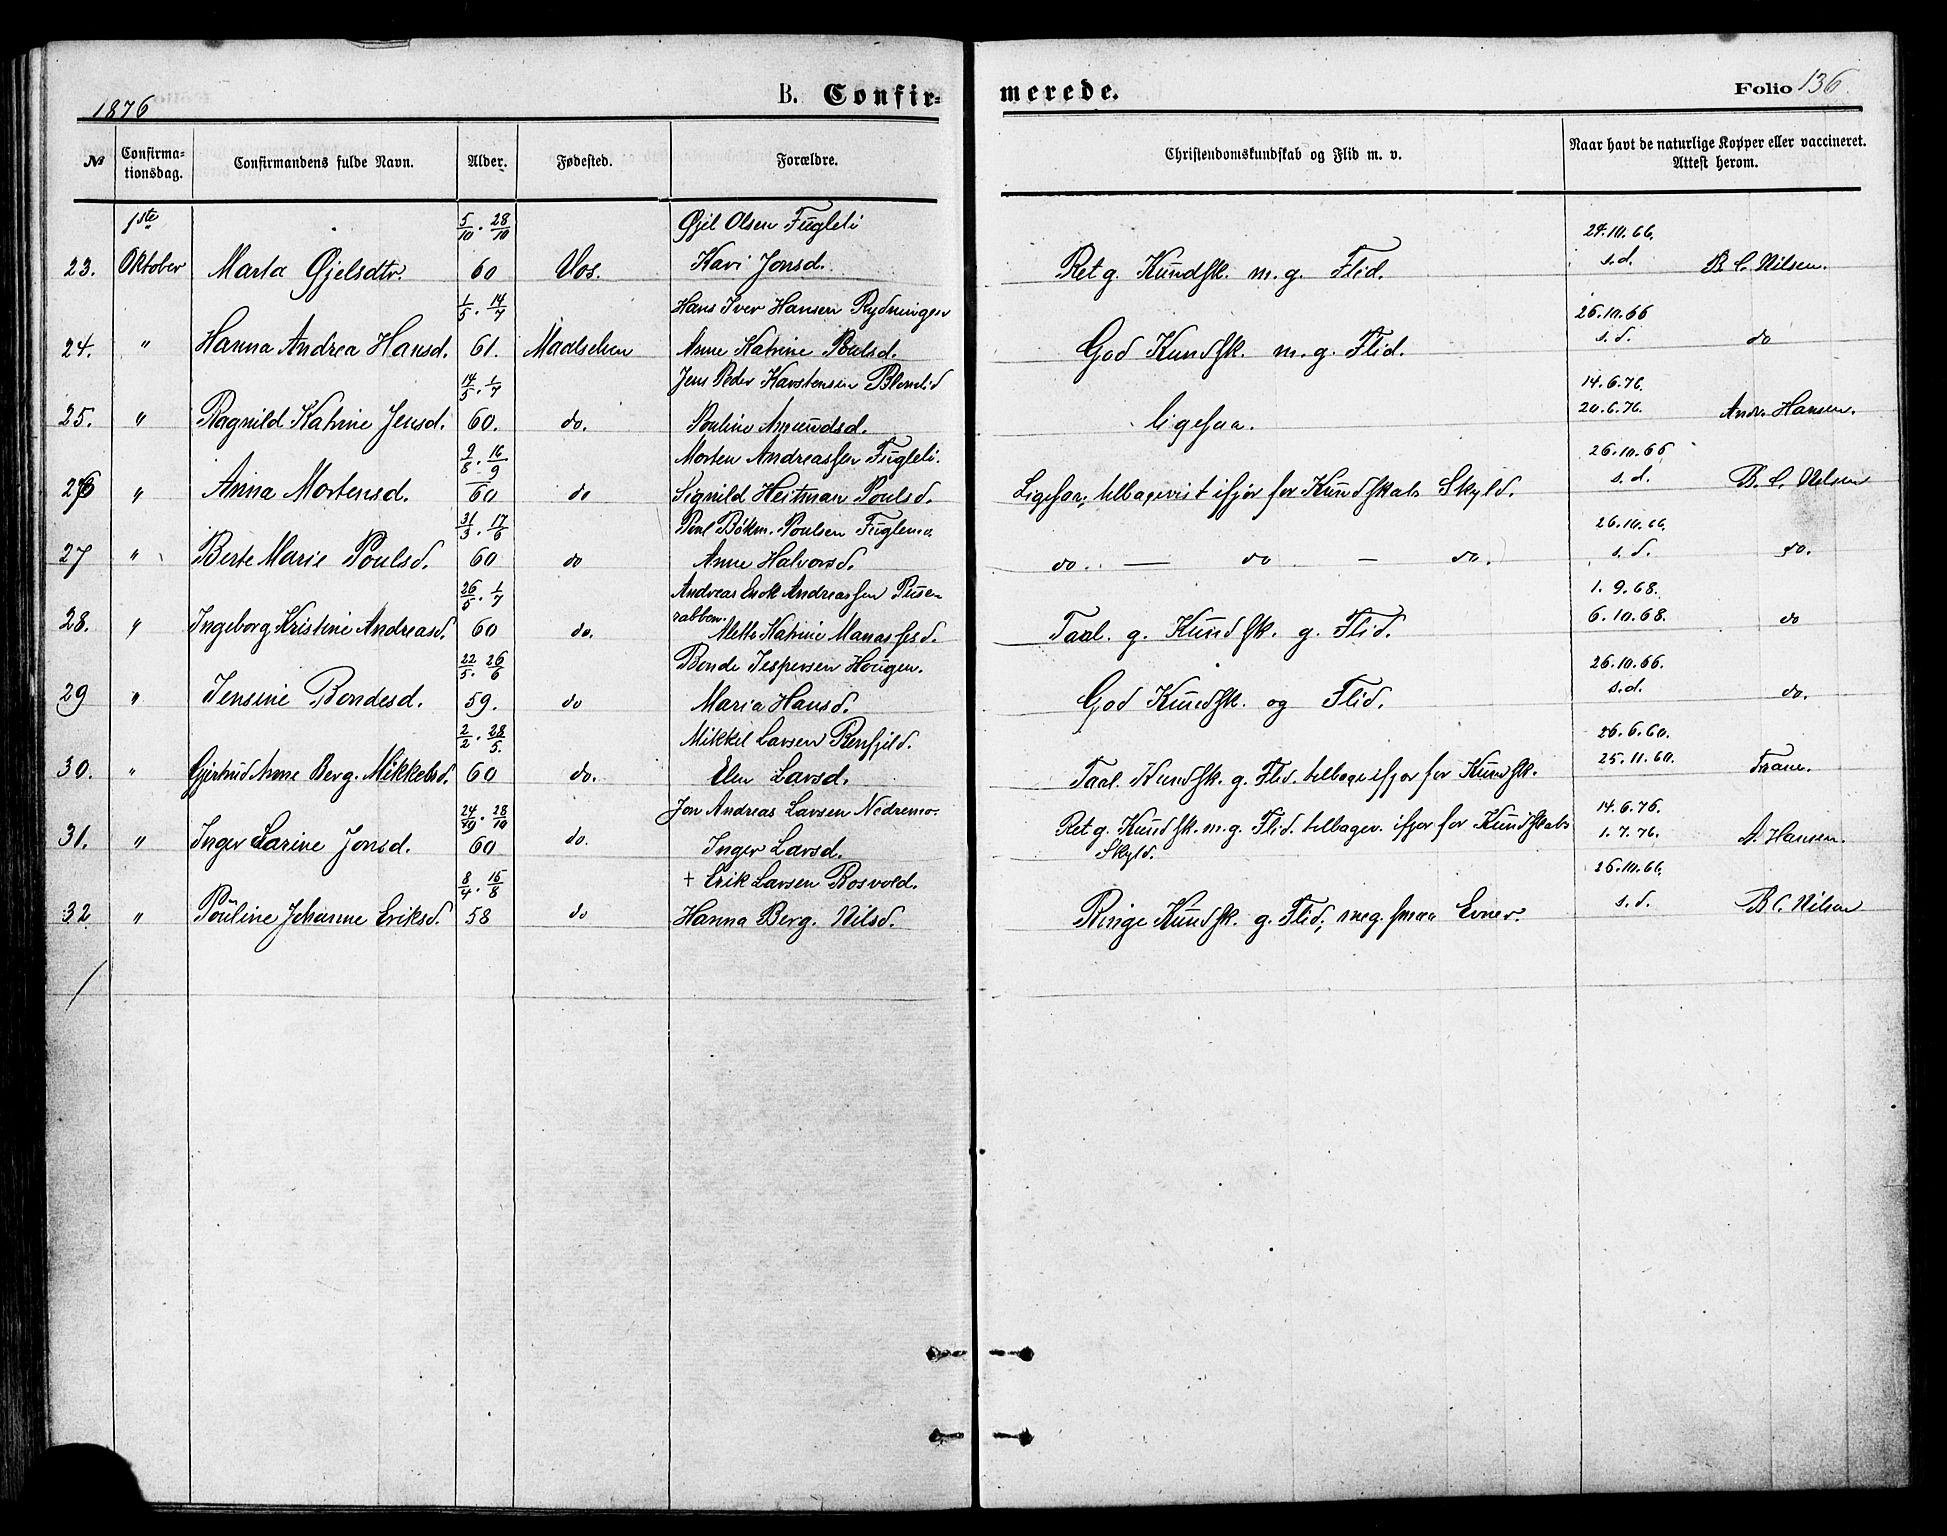 1876 B. Confirmerede. Folio 136
№ Confirmationsdag. Confirmandens fulde Navn. Alder. Fødested. Forældre. Christendomskundskab og Flid m. v. Naar havt de naturlige Kopper eller vaccineret. Attest herom.
1ste 5/10. 28/10 Øjel Olsen Fugleli 24.10.66.
23. Oktober Marta Øjelsdtr. 60 Vos. Kari Jonsd. Ret g. Kundsk. m. g. Flid. s.d. B. C. Nilsen.
1/5. 14/7 Hans Iver Hansen Rydningen 26.10.66
24. " Hanna Andrea Hansd. 61. Maalselven Anne Katrine Poulsd. God Kundsk. m. g. Flid. s.d. do
14/5. 1/7 Jens Peder Karstensen Blomlid 14.6.76.
25. " Ragnild Katrine Jensd. 60. do. Pouline Amundsd. ligesaa. 20.6.76. Andr. Hansen.
2/8. 16/9 Morten Andreassen Fugleli. 26.10.66
26 " Anna Mortensd. 60 do Signild Heitman Poulsd. Ligesaa; tilbagevist ifjor for Kundskabs Skyld. s.d. B. C. Nilsen
31/3. 17/6 Poul Bökm. Poulsen Fuglemo. 26.10.66.
27 " Berte Marie Poulsd. 60 do Anne Halvorsd. do. — do — do. s.d. do.
26/5. 1/7 Andreas Andreassen Pusen- 1.9.68.
rabben.
28. " Ingeborg Kristine Andreasd. 60 do. Mette Katrine Manassesd. Taal. g. Kundsk. g. Flid. 6.10.68. do
22/5. 26/6 Bonde Jespersen Hougen. 26.10.66.
29 " Jensine Bondesd. 59. do Maria Hansd. God Kundsk. og Flid. s.d. do.
2/2. 28/5. Mikkel Larsen Renfjeld. 26.6.60.
30. " Gjertrud Anne Berg. Mikkelsd. 60 do. Elen Larsd. Taal. Kundsk. g. Flid. tilbage ifjor for Kundsk. 25.11.60. Trane.
24/10. 28/10 Jon Andreas Larsen Nedremo. 14.6.76.
31. " Inger Larine Jonsd. 60 do. Inger Larsd. Ret g. Kundsk. m. g. Flid. tilbagev. ifjor for Kundskabs 1.7.76. A. Hansen.
Skyld.
8/4. 15/8 † Erik Larsen Rosvold. 26.10.66.
32 " Pouline Johanne Eriksd. 58 do Hanna Berg. Nilsd. Ringe Kundsk. g. Flid; meg. smaa Evner. s.d. B C. Nilsen